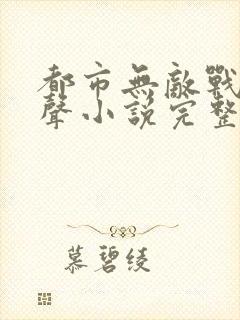 都市無敵戰
聲小說完整
慕碧綾